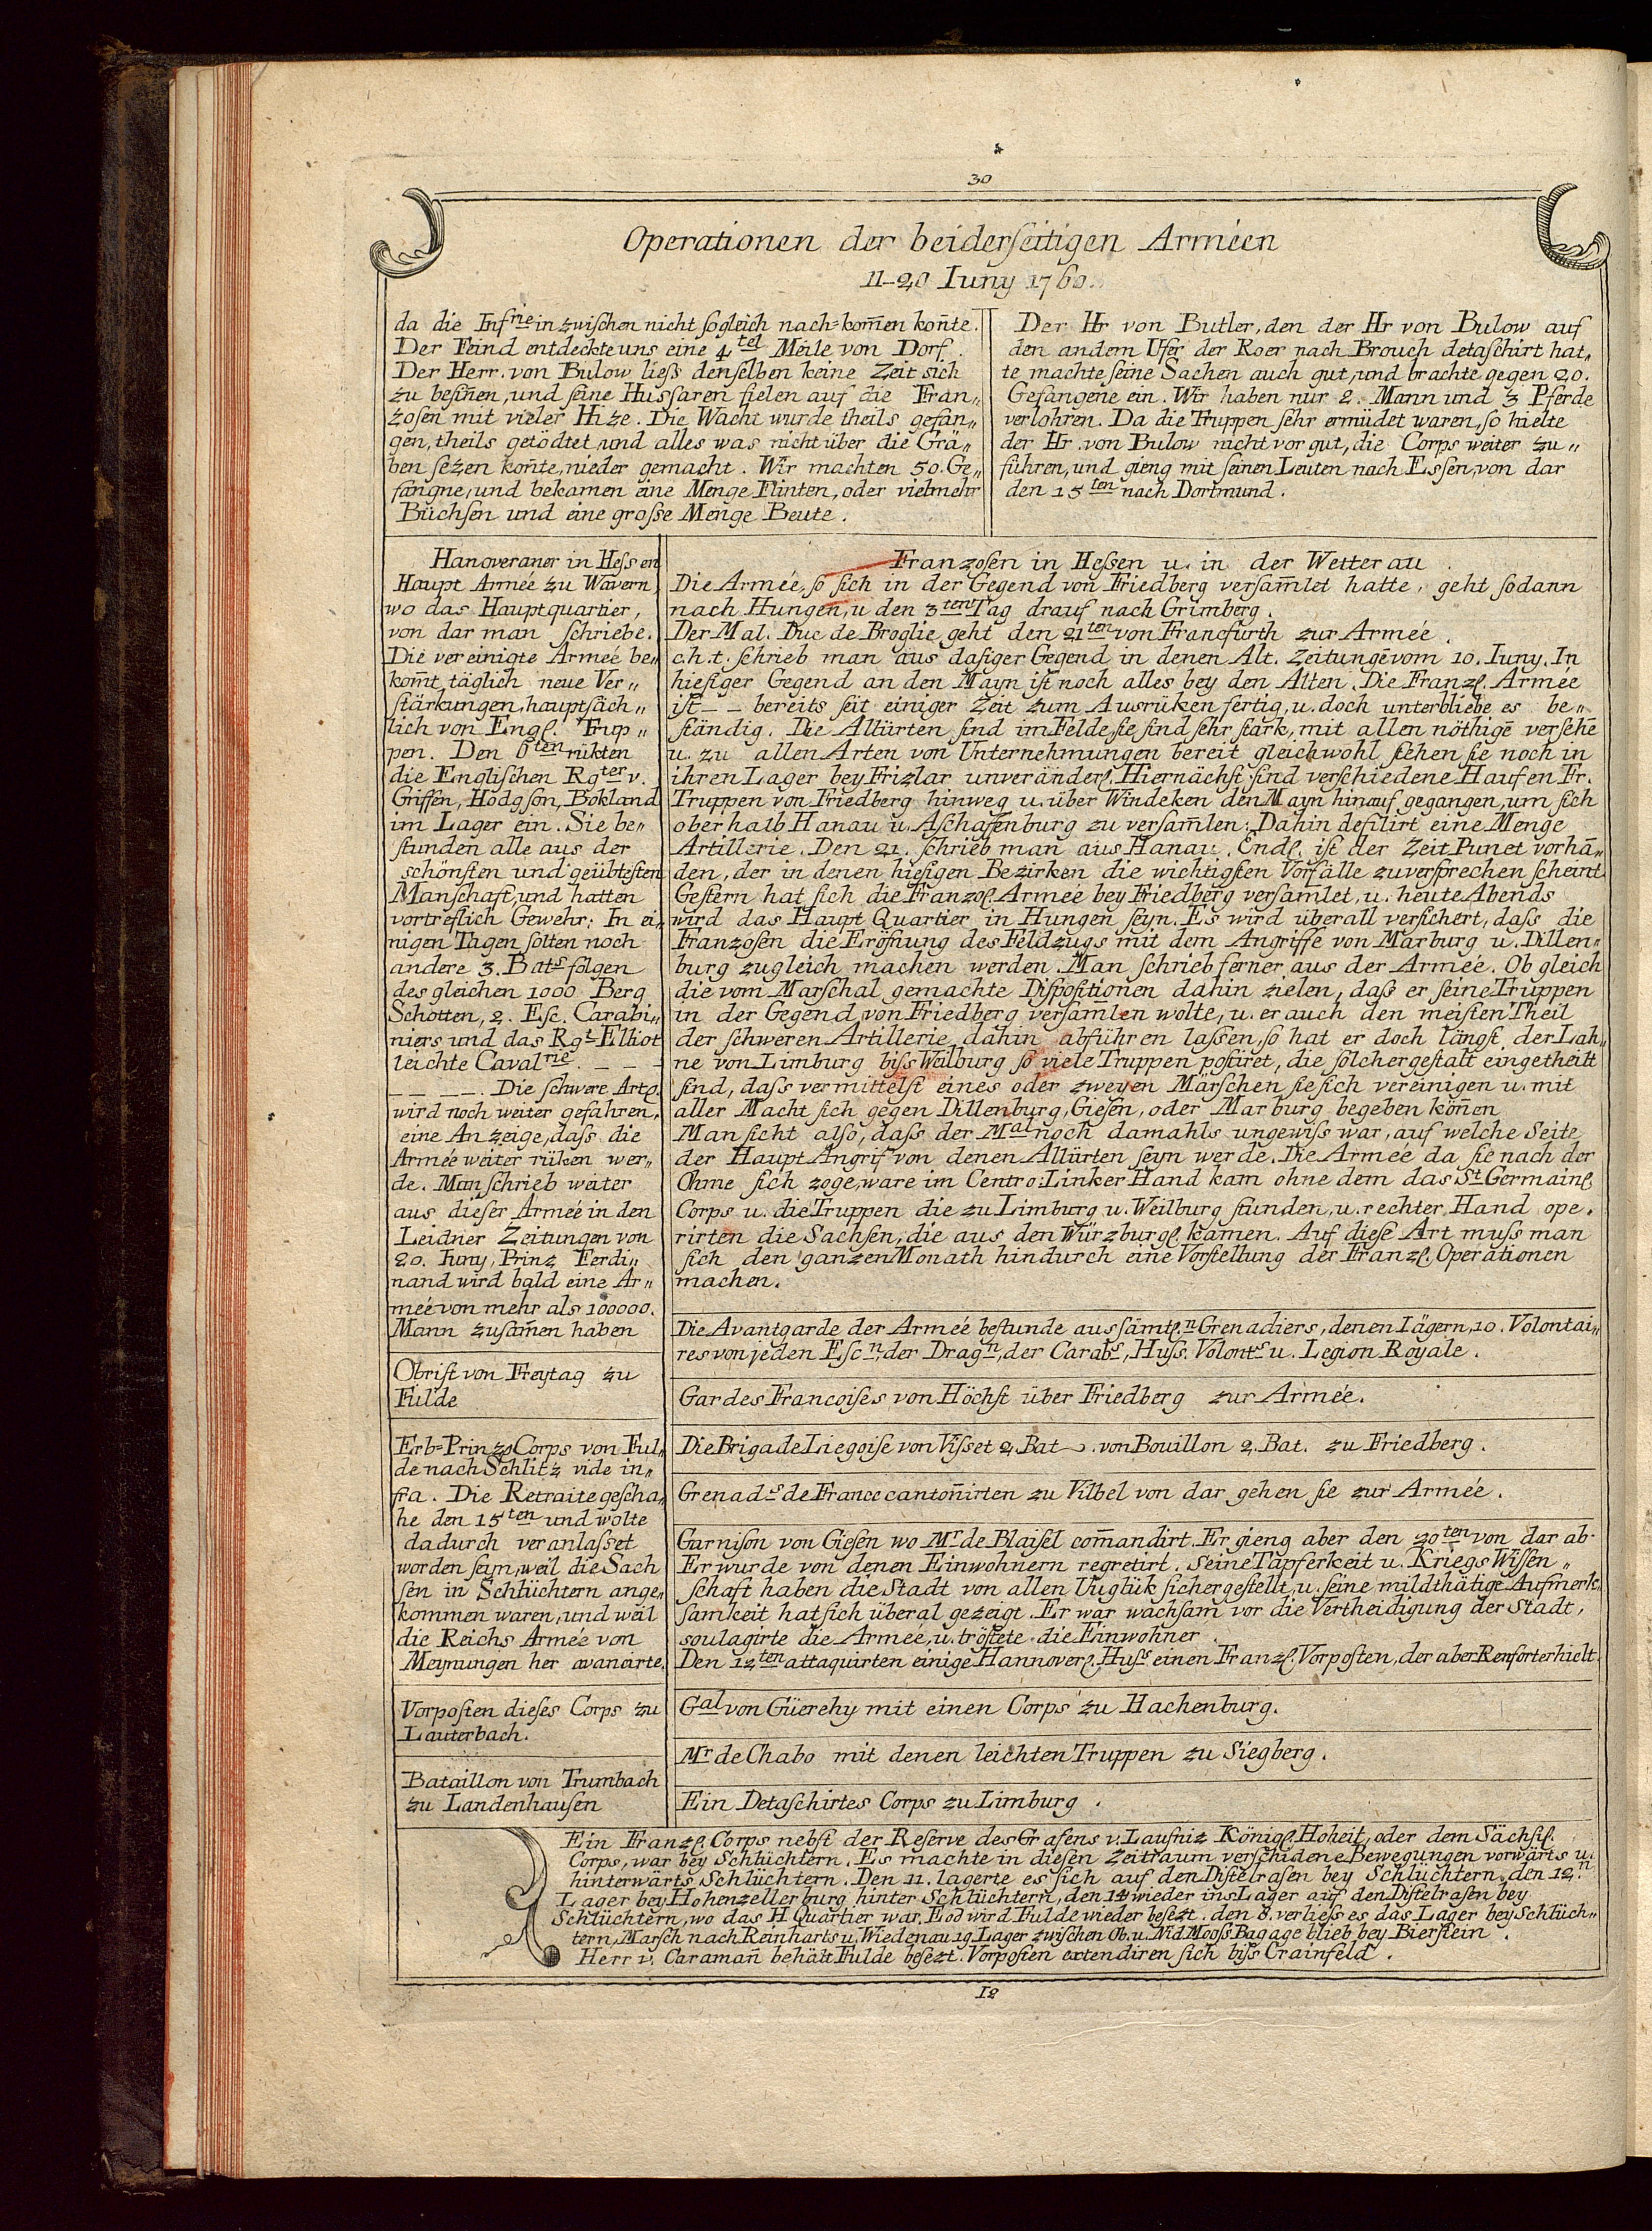 30
Operationen der beiderseitigen Arméen
11-20 Iuny 1760.
da die Infrie inzwischen nicht sogleich nach=kom̄en kon̄te.
Der Feind entdeckte uns eine 4tel Meile von Dorf.
Der Herr. von Bulow liess denselben keine Zeit sich
zu besin̄en, und seine Hussaren fielen auf die Fran„
zosen mit vieler Hize. Die Wacht wurde theils gefan„
gen, theils getödtet und alles was nicht über die Grä„
ben sezen kon̄te, nieder gemacht. Wir machten 50. Ge„
fangne, und bekamen eine Menge Flinten, oder vielmehr
Büchsen und eine grosse Menge Beute.
Der Hr von Butler, den der Hr von Bulow auf
den andern Ufer der Roer nach Brouch detaschirt hat„
te machte seine Sachen auch gut, und brachte gegen 20.
Gefangene ein. Wir haben nur 2. Mann und 3 Pferde
verlohren. Da die Truppen sehr ermüdet waren, so hielte
der Hr. von Bulow nicht vor gut, die Corps weiter zu„
führen, und gieng mit seinen Leuten nach Essen, von dar
den 15ten nach Dortmund.
Hanoveraner in Hessen
Haupt Armée zu Wavern,
wo das Hauptquartier,
von dar man schriebe.
Die vereinigte Armeé be„
kom̄t täglich neue Ver„
stärkungen, hauptsäch„
lich von Engl. Trup„
pen. Den 6ten rükten
die Englischen Rgter v.
Griffen, Hodgson, Bokland
im Lager ein. Sie be„
stunden alle aus der
schönsten und geübtesten
Manschaft, und hatten
vortreflich Gewehr: In ei„
nigen Tagen solten noch
andere 3. Bats folgen
des gleichen 1000 Berg
Schotten, 2. Esc. Carabi„
niers und das Rgt Elliot
leichte Cavalrie. _ _ _
_ _ _ _. Die schwere Artl.
wird noch weiter gefahren,
eine Anzeige, dass die
Armée weiter rüken wer„
de. Man schrieb weiter
aus dieser Armeé in den
Leidner Zeitungen von
20. Iuny, Prinz Ferdi„
nand wird bald eine Ar„
meé von mehr als 100000.
Mann zusam̄en haben
Obrist von Freytag zu
Fulde
Erb=Prinzl Corps von Ful„
de nach Schlitz vide in„
fra. Die Retraite gescha„
he den 15ten und wolte
dadurch veranlasset
worden seyn, weil die Sach
sen in Schlüchtern ange„
kommen waren, und weil
die Reichs Armée von
Meynungen her avancirte.
Vorposten dieses Corps zu
Lauterbach.
Bataillon von Trumbach
zu Landenhausen
Franzosen in Hessen u. in der Wetterau.
Die Armée, so sich in der Gegend von Friedberg versam̄let hatte, geht sodann
nach Hungen, u den 3ten Tag drauf nach Grimberg.
Der Mal. Duc de Broglie geht den 21ten von Francfurth zur Armée.
c.h.t. schrieb man aus dasiger Gegend in denen Alt. Zeitungē vom 10. Iuny. In
hiesiger Gegend an den Mayn ist noch alles bey den Alten. Die Franzl. Armée
ist _ _ bereits seit einiger Zeit zum Ausrüken fertig, u. doch unterbliebe es be„
ständig. Die Alliirten sind im Felde, sie sind sehr stark, mit allen nöthigē versehē
u. zu allen Arten von Unternehmungen bereit gleichwohl stehen sie noch in
ihren Lager bey Frizlar unveränderl. Hiernächst sind verschiedene Haufen Fr.
Truppen von Friedberg hinweg u. über Windeken den Mayn hinauf gegangen, um sich
oberhalb Hanau u. Aschaffenburg zu versam̄len: Dahin defilirt eine Menge
Artillerie. Den 21. schrieb man aus Hanau. Endl. ist der Zeit Punct vorhā„
den, der in denen hiesigen Bezirken die wichtigsten Vorfälle zuversprechen scheint.
Gestern hat sich die Franzos. Armeé bey Friedberg versamlet, u. heute Abends
wird das Haupt Quartier in Hungen seyn. Es wird überall versichert, dass die
Franzosen die Eröfnung des Feldzugs mit dem Angriffe von Marburg u. Dillen„
burg zugleich machen werden. Man schrieb ferner aus der Armée. Ob gleich
die vom Marschal gemachte Dispositionen dahin zielen, dass er seine Truppen
in der Gegend von Friedberg versamlen wolte, u. er auch den meisten Theil
der schweren Artillerie dahin abführen lassen, so hat er doch längst der Lah„
ne von Limburg biss Weilburg so viele Truppen postiret, die solchergestalt eingetheilt
sind, dass vermittelst eines oder zweyen Märschen sie sich vereinigen u. mit
aller Macht sich gegen Dillenburg, Giesen, oder Marburg begeben kön̄en
Man sicht also, dass der Mal noch damahls ungewiss war, auf welche Seite
der Haupt Angrif von denen Alliirten seyn werde. Die Armee da sie nach der
Ohme sich zoge, ware im Centro: Linker Hand kam ohne dem das St Germainl.
Corps u. die Truppen die zu Limburg u. Weilburg stunden, u. rechter Hand ope.
rirten die Sachsen, die aus den Würzburgl. kamen. Auf diese Art muss man
sich den ganzen Monath hindurch eine Vorstellung der Franzl. Operationen
machen.
Die Avantgarde der Armeé bestunde aus sämtl.n Grenadiers, denen Iägern, 10. Volontai„
res von jeden Escn, der Dragn, der Carabs, Huss. Volonts u. Legion Royale.
Gardes Francoises von Höchst über Friedberg zur Armée.
Die Brigade Liegoise von Visset 2. Bat. von Bouillon 2. Bat. zu Friedberg.
Grenads de France canton̄irten zu Vilbel von dar gehen sie zur Armée.
Garnison von Giesen wo Mr de Blaisel com̄andirt. Er gieng aber den 20ten von dar ab.
Er wurde von denen Einwohnern regretirt. Seine Tapferkeit u. Kriegs Wissen„
schaft haben die Stadt von allen Unglük sichergestellt, u. seine mildthätige Aufmerk„
samkeit hat sich überal gezeigt. Er war wachsam vor die Vertheidigung der Stadt,
soulagirte die Armeé, u. tröstete die Einwohner.
Den 12ten attaquirten einige Hannoverl. Huss einen Franzl. Vorposten, der aber Renfort erhielt.
Gal von Güerehy mit einen Corps zu Hachenburg.
Mr de Chabo mit denen leichten Truppen zu Siegberg.
Ein Detaschirtes Corps zu Limburg.
Ein Franzl. Corps nebst der Reserve des Grafens v. Lausniz Königl. Hoheit, oder dem Sächsil.
Corps, war bey Schlüchtern. Es machte in diesen Zeitraum verschidene Bewegungen vorwärts u.
hinterwärts Schlüchtern. Den 11. lagerte es sich auf den Distelrasen bey Schlüchtern. den 12.n
Lager bey Hohenzellerburg hinter Schlüchtern, den 14 wieder ins Lager auf den Distelrasen bey
Schlüchtern, wo das H Quartier war. Eod wird Fulde wieder besezt. den 8. verliess es das Lager bey Schlüch„
tern, Marsch nach Reinharts u. Wiedenau 19 Lager zwischen Ob. u. Nid Mooss. Bagage blieb bey Bierstein.
Herr v. Caraman̄ behält Fulde besezt. Vorposten extendiren sich biss Crainfeld.
12